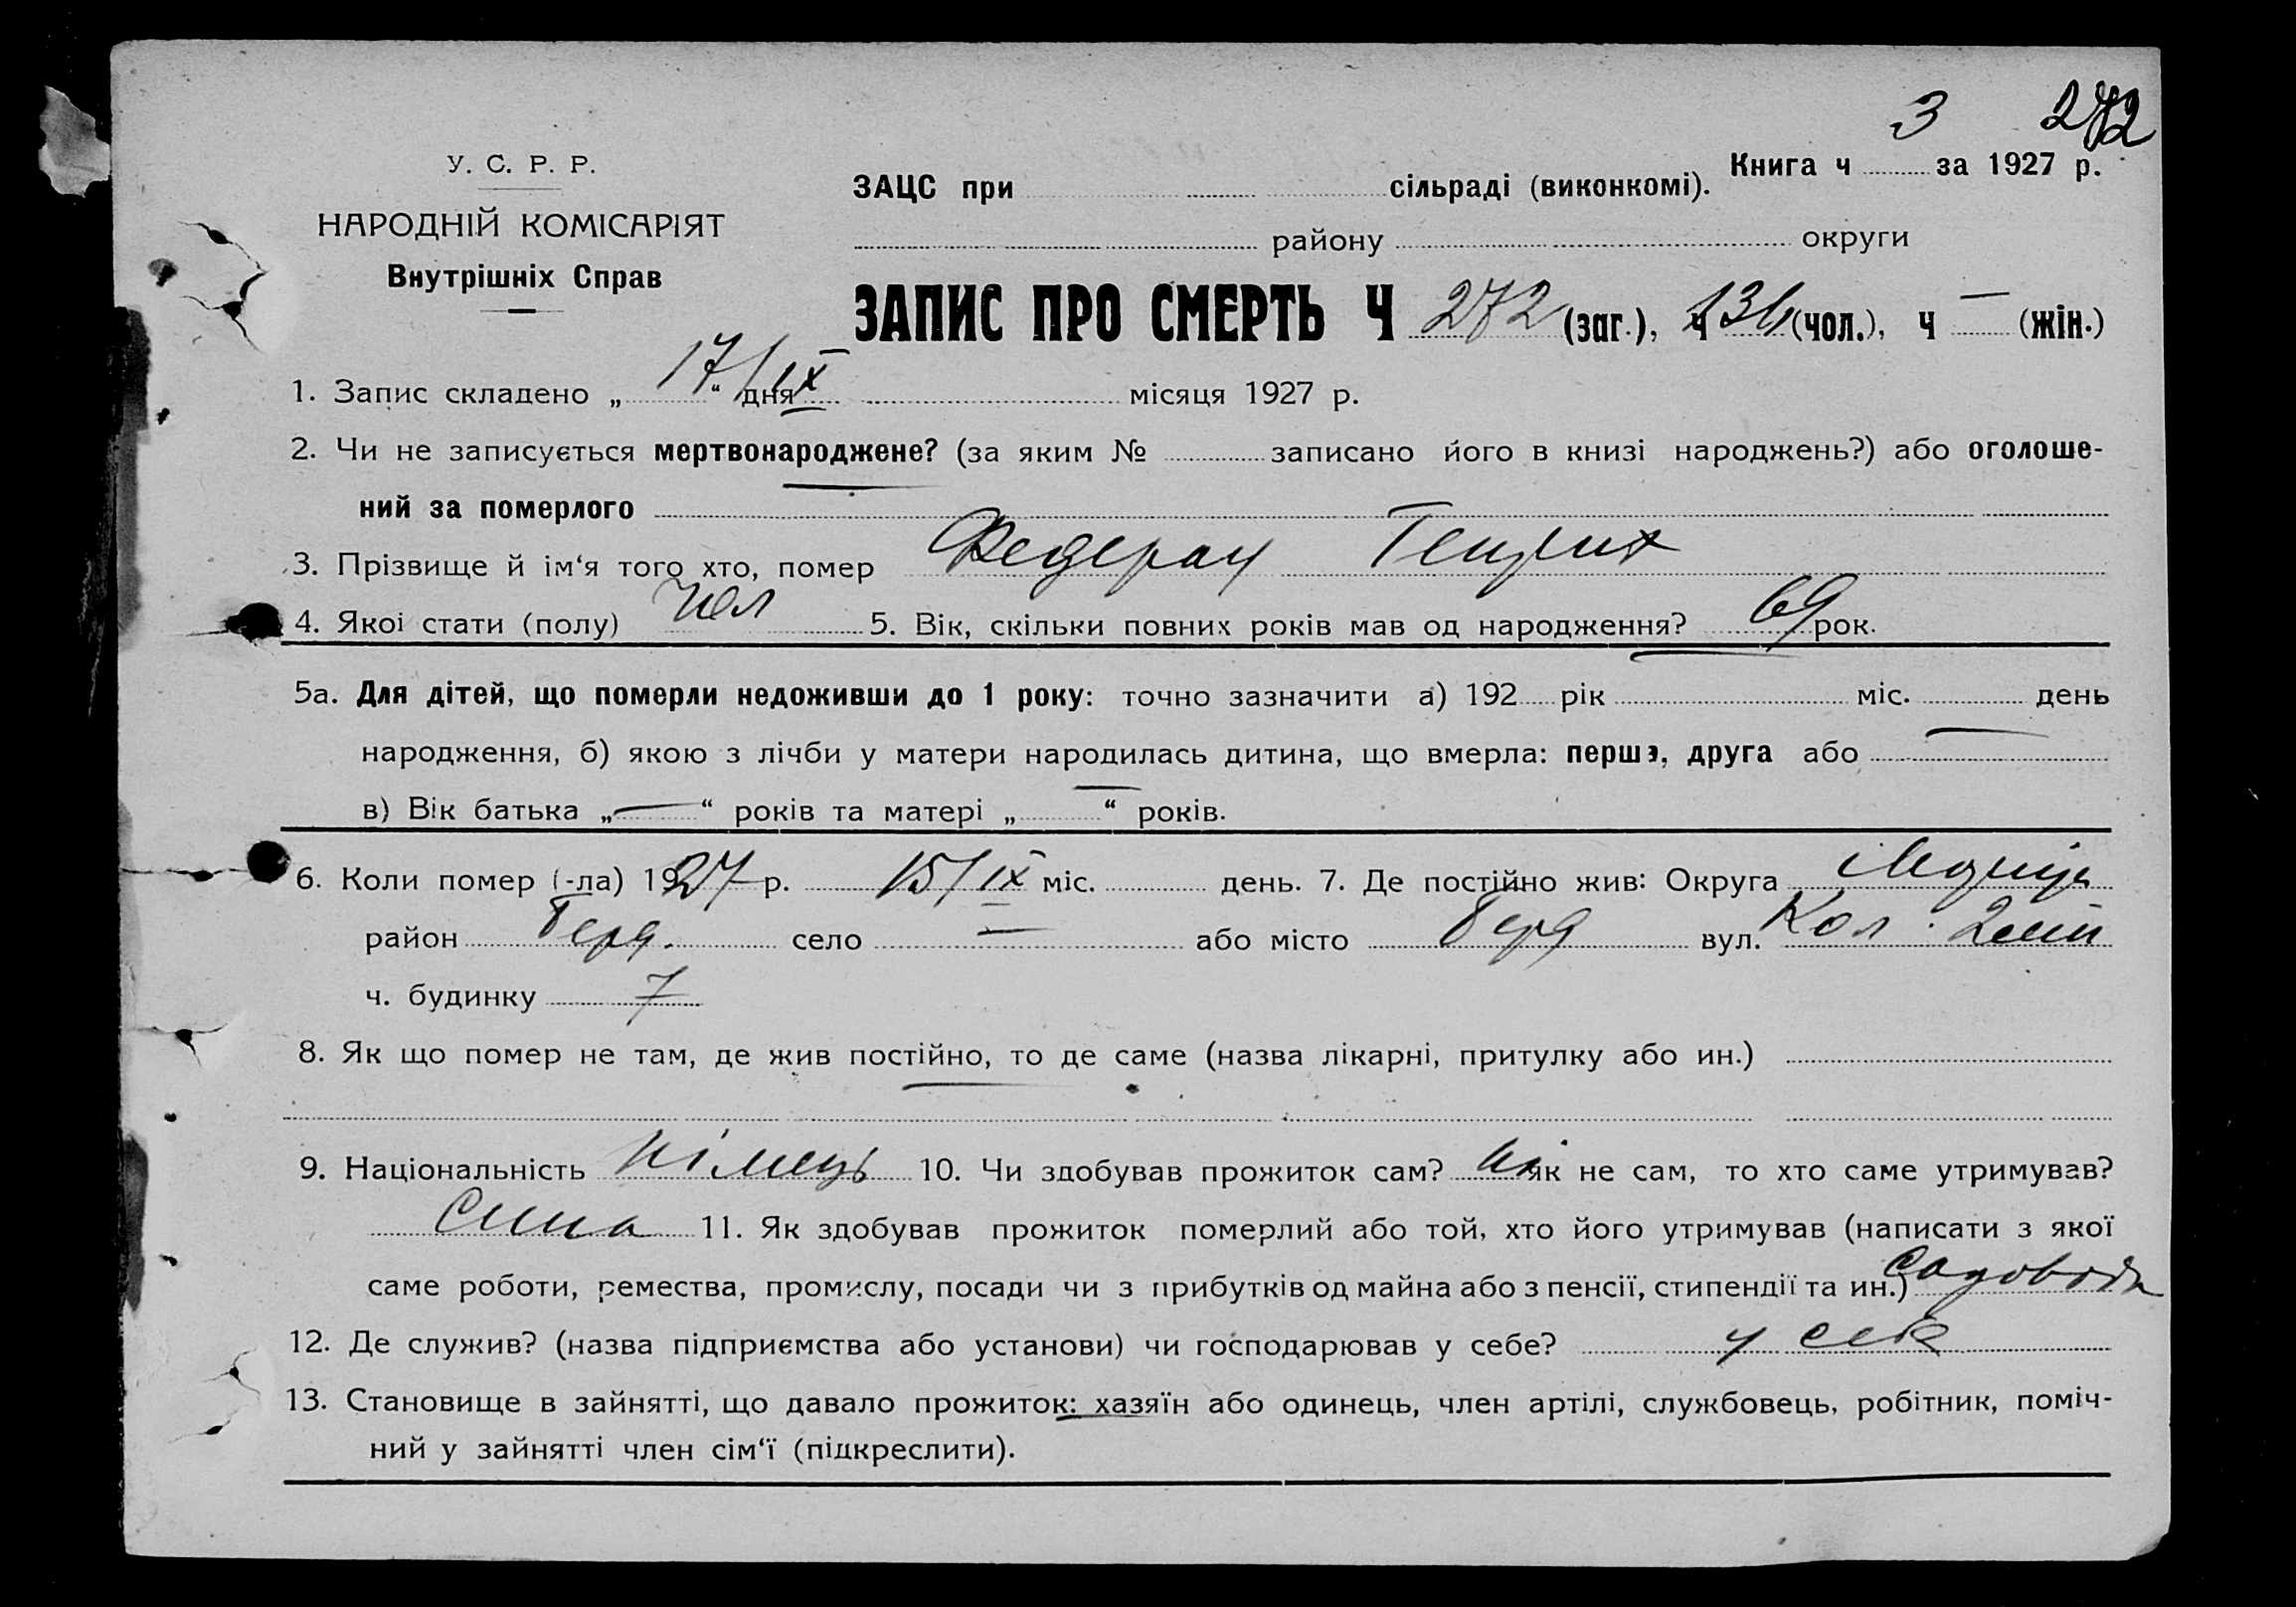 3 272
У. С. Р. Р.
Книга ч за 1927 р.
ЗАЦС при сільраді (виконкомі).
НАРОДНІЙ КОМІСАРІЯТ
району округи
Внутрішніх Справ
ЗАПИС ПРО СМЕРТЬ Ч 272 (заг.), ч 136 (чол.), ч — (жін.)
1. Запис складено „17“ дня IX місяця 1927 р.
2. Чи не записується мертвонароджене? (за яким № записано його в книзі народжень?) або оголоше-
ний за померлого —
3. Прізвище й ім‘я того хто, помер Федерау Генрих
4. Якоі стати (полу) чол 5. Вік, скільки повних років мав од народження? 69 рок.
5а. Для дітей, що померли недоживши до 1 року: точно зазначити а) 192 рік — міс. день
народження, б) якою з лічби у матери народилась дитина, що вмерла: перша, друга або —
в) Вік батька „—“ років та матері „—“ років.
6. Коли помер (-ла) 1927 р. 15/IX міс. день. 7. Де постійно жив: Округа
район Берд. село — або місто Берд вул. Кол.
ч. будинку 7
8. Як що помер не там, де жив постійно, то де саме (назва лікарні, притулку або ин.)
—
9. Національність німець 10. Чи здобував прожиток сам? ні як не сам, то хто саме утримував?
Сина 11. Як здобував прожиток померлий або той, хто його утримував (написати з якої
саме роботи, ремества, промислу, посади чи з прибутків од майна або з пенсії, стипендії та ин.) садовод
12. Де служив? (назва підприємства або установи) чи господарював у себе? у себе
13. Становище в зайнятті, що давало прожиток: хазяїн або одинець, член артілі, службовець, робітник, поміч-
ний у зайнятті член сім‘ї (підкреслити).